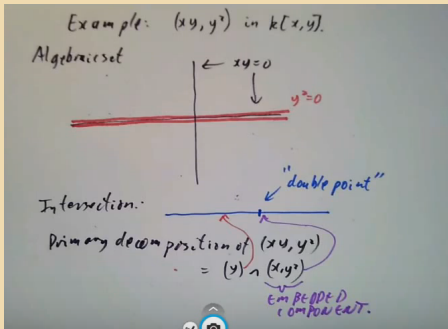 Example: (xy, y²) in k[x,y].
Algebraic set
← xy=0
y²=0
"double point"
Intersection:
Primary decomposition of (xy, y²)
= (y) ∩ (x, y²)
EMBEDDED
COMPONENT.